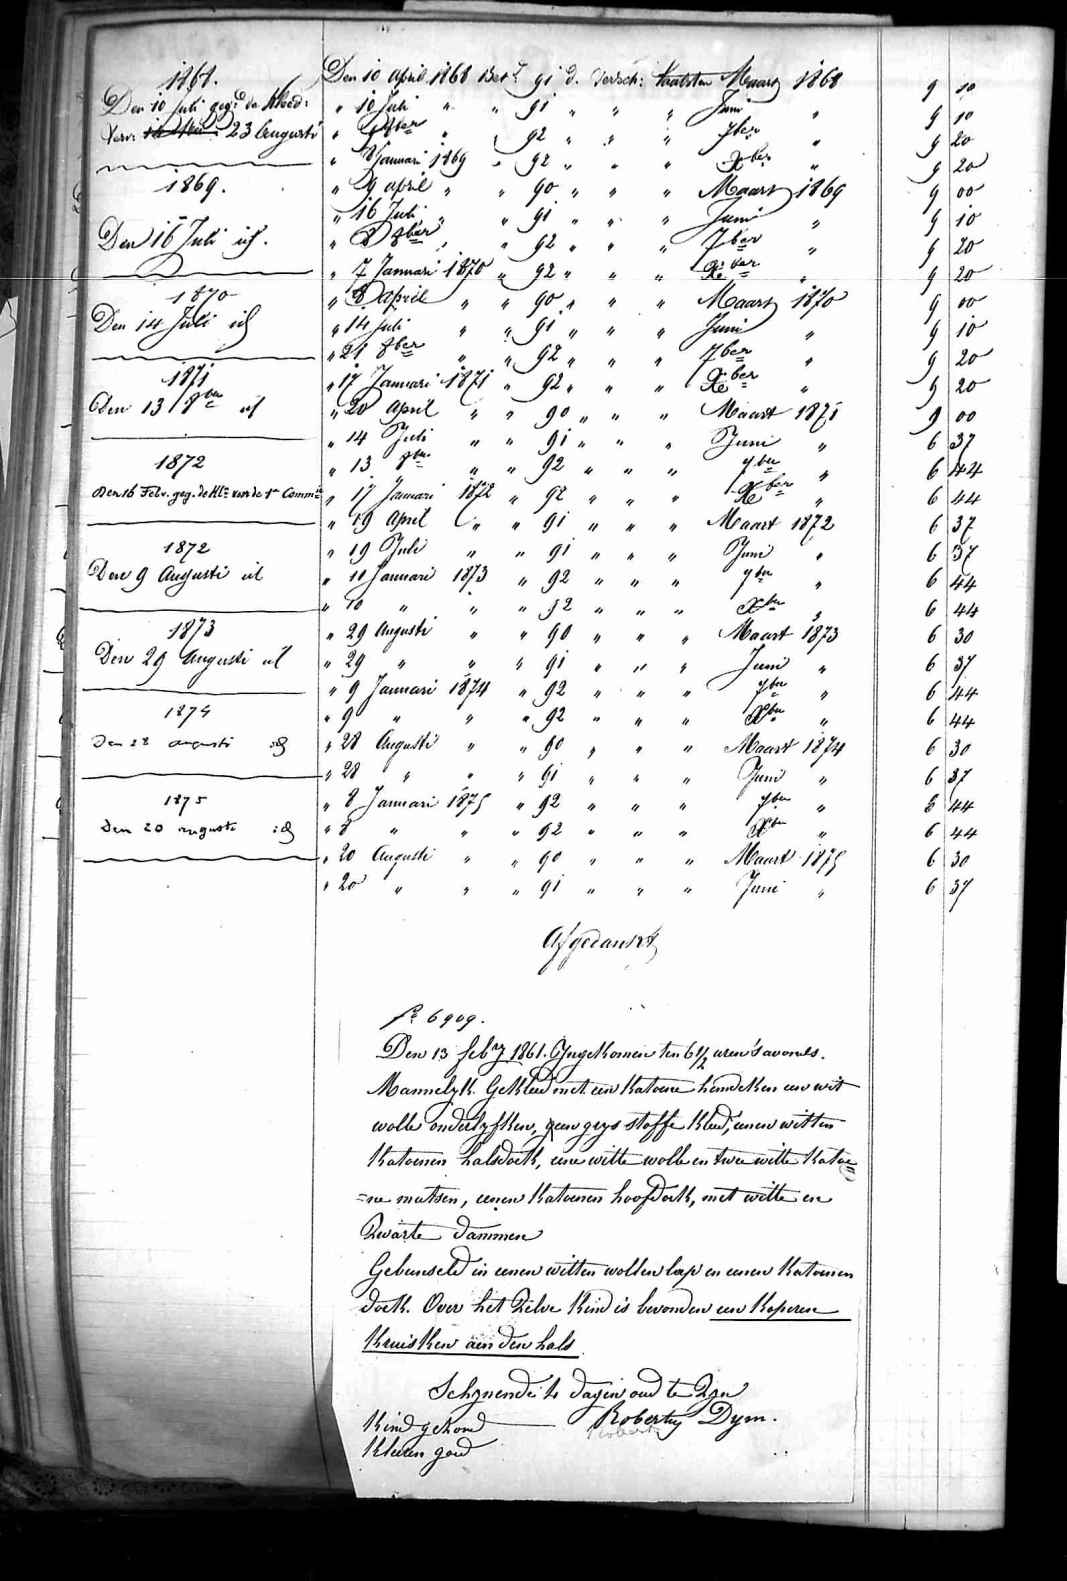 1868.
Den 10 Juli geg.d de kleed:
verv: 23 Augusti
1869.
Den 16 Juli id.
1870
Den 14 Juli id
1871
Den 13 8ber id
1872
Den 16 Febr. geg. de Kl.n voor de 1e Commie
1872
Den 9 Augusti id
1873
Den 29 Augusti id
1874
Den 28 augusti id
1875
Den 20 auguste id
Den 10 april 1868 Bet.d 91 d. versch: Maart 1868 9 10
" 10 Juli " " 91 " " " Juni " 9 10
" 8ber " " 92 " " " 7ber " 9 20
" 8 Januari 1869 " 92 " " " Xber " 9 20
" 9 april " " 90 " " " Maart 1869 9 00
" 16 Juli " " 91 " " " Juni " 9 10
" 8 8ber " " 92 " " " 7ber " 9 20
" 7 Januari 1870 " 92 " " " Xber " 9 20
" 8 april " " 90 " " " Maart 1870 9 00
" 14 Juli " " 91 " " " Juni " 9 10
" 21 8ber " " 92 " " " 7ber " 9 20
" 17 Januari 1871 " 92 " " " Xber " 9 20
" 20 april " " 90 " " " Maart 1871 9 00
" 14 Juli " " 91 " " " Juni " 6 37
" 13 8ber " " 92 " " " 7ber " 6 44
" 17 Januari 1872 " 92 " " " Xber " 6 44
" 19 april " " 91 " " " Maart 1872 6 37
" 19 Juli " " 91 " " " Juni " 6 37
" 11 Januari 1873 " 92 " " " 7ber " 6 44
" 10 " " " 92 " " " Xber " 6 44
" 29 Augusti " " 90 " " " Maart 1873 6 30
" 29 " " " 91 " " " Juni " 6 37
" 9 Januari 1874 " 92 " " " 7ber " 6 44
" 9 " " " 92 " " " Xber " 6 44
" 28 Augusti " " 90 " " " Maart 1874 6 30
" 28 " " " 91 " " " Juni " 6 37
" 8 Januari 1875 " 92 " " " 7ber " 6 44
" 8 " " " 92 " " " Xber " 6 44
" 20 Augusti " " 90 " " " Maart 1875 6 30
" 20 " " " 91 " " " Juni " 6 37
Afgedankt
No 6909.
Den 13 febry 1861. Ingekomen ten 6 1/2 uren 's avonds.
Mannelyk. Gekleed met een katoene hemdeken een wit
wolle onderlyfken, een grys stoffe kleed, eenen witten
katoenen halsdoek, eene witte wolle en twee witte katoe
=ne mutsen, eenen katoenen hoofdoek, met witte en
zwarte dammen
Gebunseld in eenen witten wollen lap en eenen katoenen
doek. Over het zelve kind is bevonden een koperen
kruisken aen den hals
Schynende dagen oud te zyn
Kind gezond Robertus Dym.
Kleeren goed